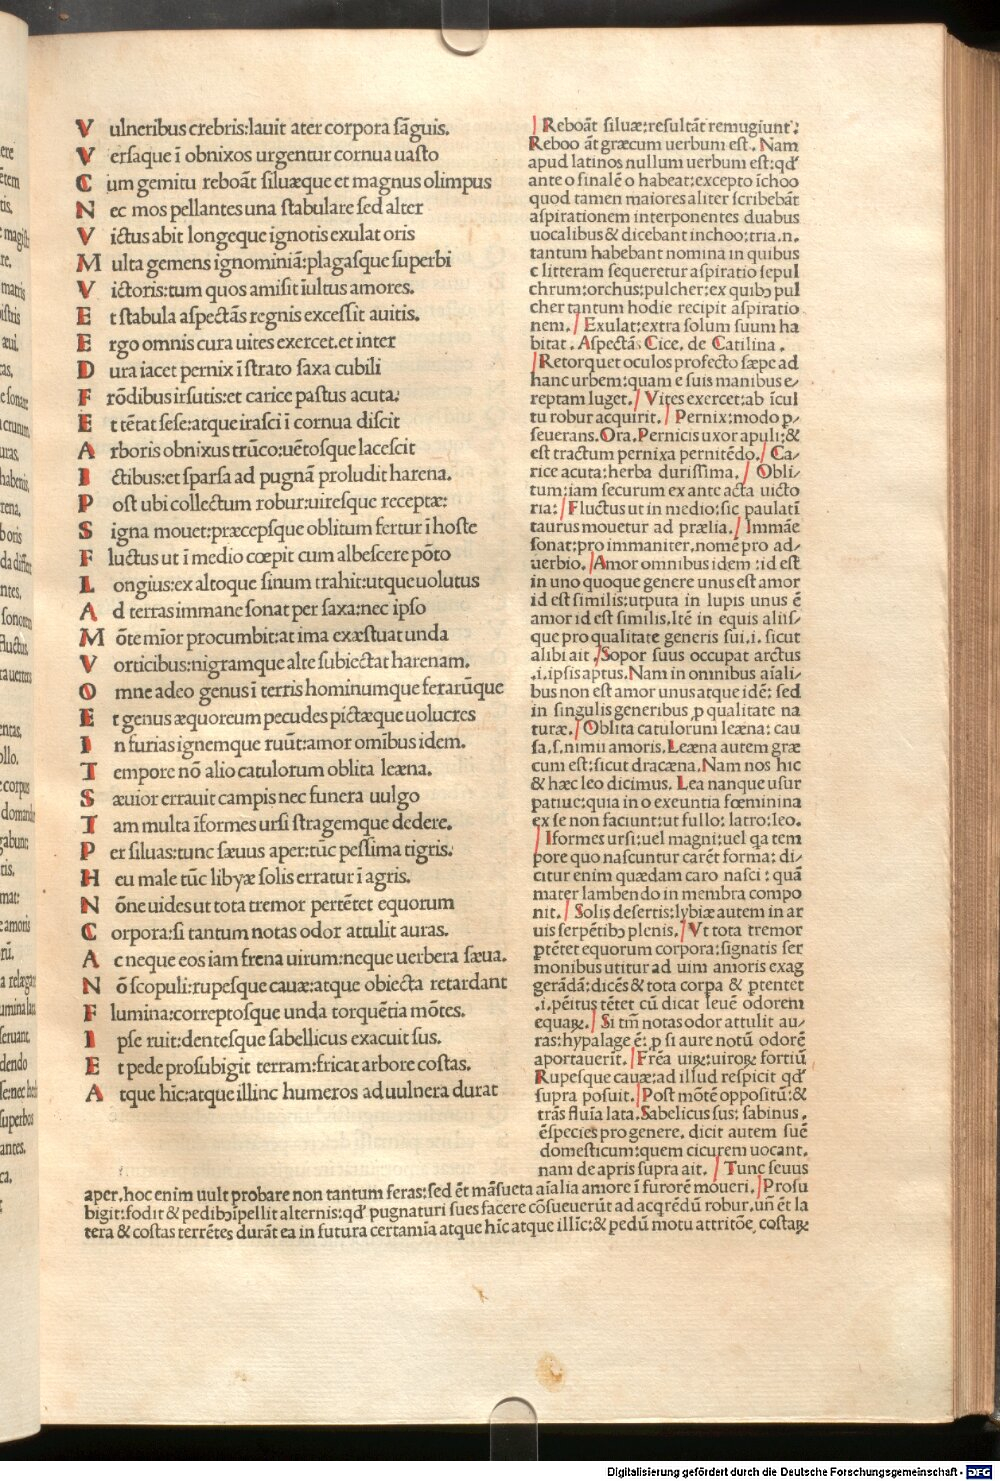 V ulneribus crebris:lauit ater corpora sāguis.
V ersaque ī obnixos urgentur cornua uasto
C um gemitu reboāt siluæque et magnus olimpus
N ec mos pellantes una stabulare sed alter
V ictus abit longeque ignotis exulat oris
M ulta gemens ignominiā:plagasque superbi
V ictoris:tum quos amisit iultus amores.
E t stabula aspectās regnis excessit auitis.
E rgo omnis cura uites exercet.et inter
D ura iacet pernix ī strato saxa cubili
F rōdibus irsutis:et carice pastus acuta:
E t tētat sese:atque irasci ī cornua discit
A rboris obnixus trūco:uētosque lacescit
I ctibus:et sparsa ad pugnā proludit harena.
P ost ubi collectum robur:uiresque receptæ:
S igna mouet:præcepsque oblitum fertur ī hoste
F luctus ut ī medio cœpit cum albescere pōto
L ongius:ex altoque sinum trahit:utque uolutus
A d terras immane sonat per saxa:nec ipso
M ōte mīor procumbit:at ima exæstuat unda
V orticibus:nigramque alte subiectat harenam.
O mne adeo genus ī terris hominumque ferarūque
E t genus æquoreum pecudes pictæque uolucres
I n furias ignemque ruūt:amor omībus idem.
T empore nō alio catulorum oblita leæna.
S æuior errauit campis nec funera uulgo
T am multa īformes ursi stragemque dedere.
P er siluas:tunc sæuus aper:tūc pessima tigris.
H eu male tūc libyæ solis erratur ī agris.
N ōne uides ut tota tremor pertētet equorum
C orpora:si tantum notas odor attulit auras.
A c neque eos iam frena uirum:neque uerbera sæua.
N ō scopuli:rupesque cauæ:atque obiecta retardant
F lumina:correptosque unda torquētia mōtes.
I pse ruit:dentesque sabellicus exacuit sus.
E t pede prosubigit terram:fricat arbore costas.
A tque hīc:atque illinc humeros ad uulnera durat
Reboāt siluæ:resultāt remugiunt:
Reboo āt græcum uerbum est. Nam
apud latinos nullum uerbum est:qđ
ante o finalē o habeat:excepto īchoo
quod tamen maiores aliter scribebāt
aspirationem interponentes duabus
uocalibus & dicebant inchoo:tria.n.
tantum habebant nomina in quibus
c litteram sequeretur aspiratio sepul
chrum:orchus:pulcher:ex quibꝫ pul
cher tantum hodie recipit aspiratio
nem. Exulat:extra solum suum ha
bitat. Aspectās Cice. de Catilina.
Retorquet oculos profecto sæpe ad
hanc urbem:quam e suis manibus e/
reptam luget. Vites exercet:ab īcul
tu robur acquirit. Pernix:modo p/
seuerans. Ora. Pernicis uxor apuli:&
est tractum pernixa pernitēdo. Ca/
rice acuta:herba durissima. Obli/
tum:iam securum ex ante acta uicto
ria: Fluctus ut in medio:sic paulatī
taurus mouetur ad prælia. Immāe
sonat:pro immaniter.nomē pro ad/
uerbio. Amor omnibus idem :id est
in uno quoque genere unus est amor
id est similis:utputa in lupis unus ē
amor id est similis.Itē in equis aliis/
que pro qualitate generis sui.i. sicut
alibi ait. Sopor suus occupat arctus
.i.ipsis aptus. Nam in omnibus aīali/
bus non est amor unus atque idē: sed
in singulis generibus ꝓ qualitate na
turæ. Oblita catulorum leæna: cau
sa.s.nimii amoris. Leæna autem græ
cum est:sicut dracæna. Nam nos hic
& hæc leo dicimus. Lea nanque usur
patiue:quia in o exeuntia fœminina
ex se non faciunt:ut fullo: latro:leo.
Iformes ursi:uel magni:uel qa tem
pore quo nascuntur carēt forma: di/
citur enim quædam caro nasci : quā
mater lambendo in membra compo
nit. Solis desertis:lybiæ autem in ar
uis serpētibꝫ plenis. Vt tota tremor
ꝑtētet equorum corpora:signatis ser
monibus utitur ad uim amoris exag
gerādā:dicēs & tota corpa & ꝑtentet
.i.pēitus tētet cū dicat leuē odorem
equaꝝ. Si tm̄ notas odor attulit au/
ras:hypalage ē: ꝓ si aure notū odorē
aportauerit. Frēa uiꝝ:uiroꝝ fortiū
Rupesque cauæ:ad illud respicit qđ
supra posuit. Post mōtē oppositū:&
trās fluīa lata. Sabelicus sus: sabinus.
ēspecies pro genere. dicit autem suē
domesticum:quem cicurem uocant.
nam de apris supra ait. Tunc seuus
aper.hoc enim uult probare non tantum feras:sed ēt māsueta aīalia amore ī furorē moueri. Prosu
bigit:fodit & pedibꝫ īpellit alternis:qđ pugnaturi sues facere cōsueuerūt ad acqrēdū robur.uñ ēt la
tera & costas terrētes durāt ea in futura certamīa atque hīc atque illīc:& pedū motu attritōe costaꝝ
Digitalisierung gefördert durch die Deutsche Forschungsgemeinschaft - DFG